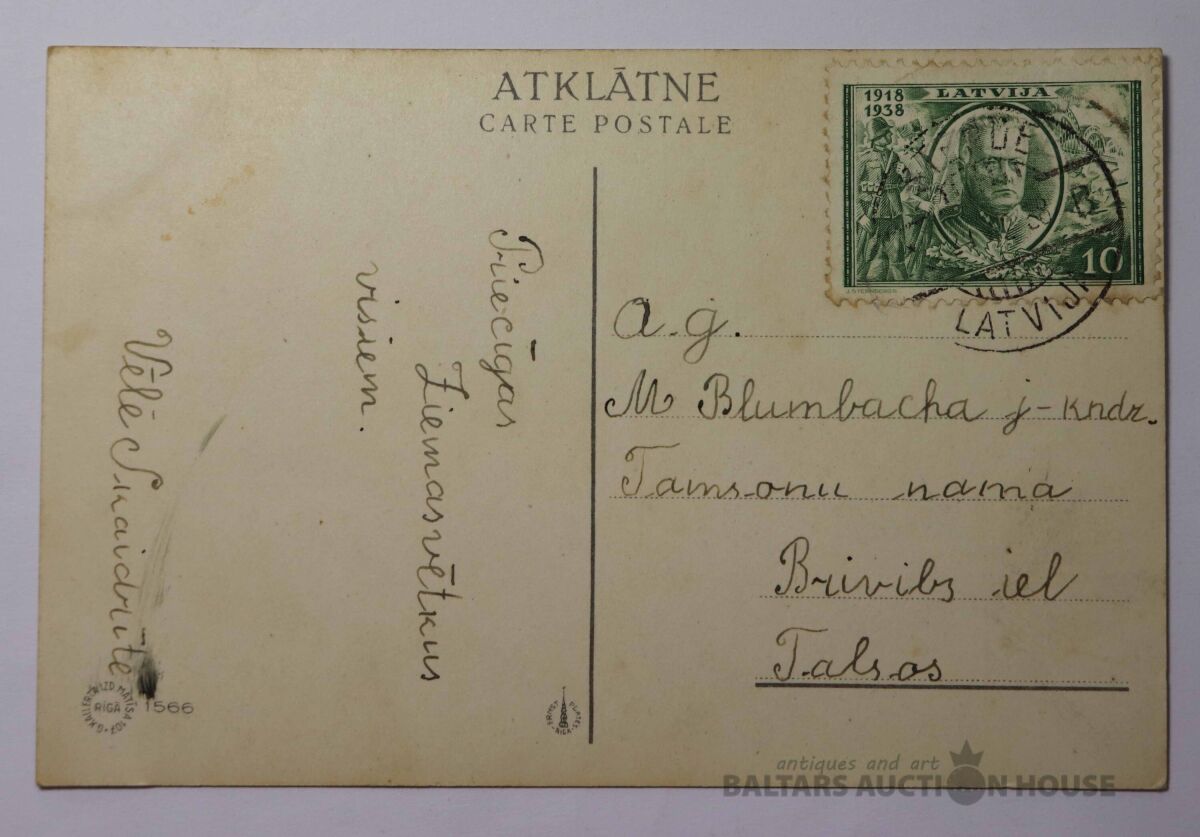 ATKLĀTNE
CARTE POSTALE
1918
1938
LATVIJA
10
J. STERNBERGS
B
LATVIJA
Priecīgas
Ziemasvētkus
visiem.
Vēlē Skaidrīte
A. ģ.
M Blumbacha j-kndz.
Tamsonu nama
Brivibs iel
Talsos
RĪGĀ
1566
antiques and art
BALTARS AUCTION HOUSE